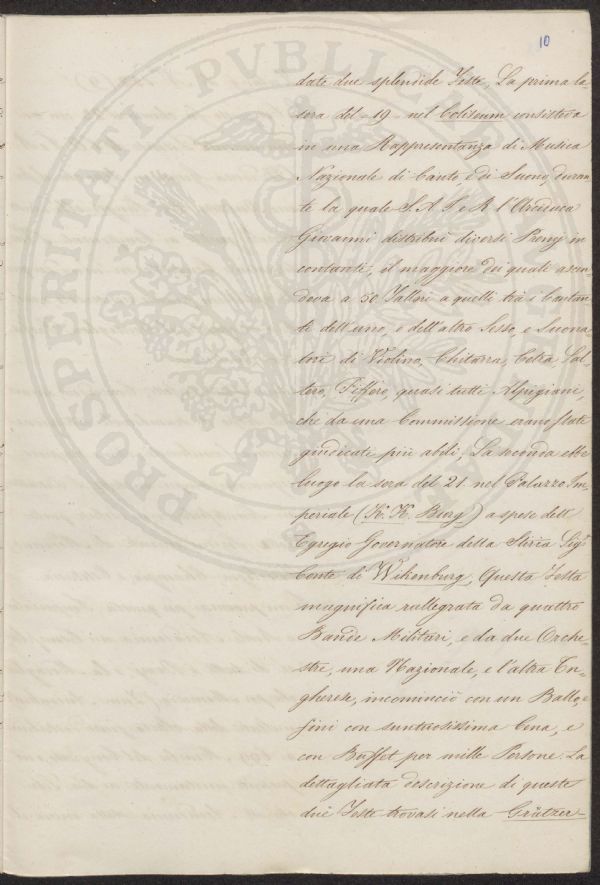 10
date due splendide Feste, La prima la
sera del 19 nel Coliseum consisteva
in una Rappresentanza di Musica
Nazionale di Canto, e di Suono, duran
te la quale S. A. I. e R. l'Arciduca
Giovanni distribuì diversi Premj in
contanti, il maggiore dei quali ascen
deva a 50 Talleri a quelli trà i Cantan
ti dell'uno, e dell'altro Sesso, e Suona
tori di Violino, Chitarra, Cetra, Sal=
tero, Piffero, quasi tutti Alpigiani,
che da una Commissione erano stati
giudicati più abili, La seconda ebbe
luogo la sera del 21. nel Palazzo Im
periale (K. K. Burg) a spese dell'
Egregio Governatore della Stiria Sigr
Conte di Wikenburg, Questa Festa
magnifica rallegrata da quattro
Bande Militari, e da due Orche=
stre, una Nazionale, e l'altra Un=
gherese, incominciò con un Ballo, e
finì con suntuosissima Cena, e
con Buffet per mille Persone. La
dettagliata descrizione di queste
due Feste trovasi nella Grätzer
PROSPERITATI PVBLICAE